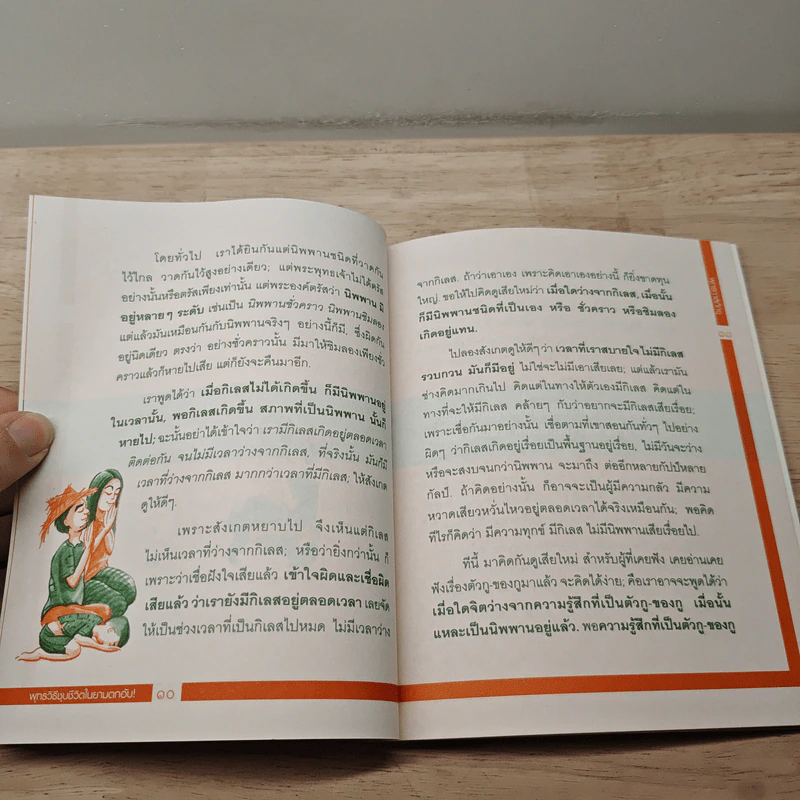 โดยทั่วไป เราได้ยินกันแต่นิพพานชนิดที่วาดกัน
ไว้ไกล วาดกันไว้สูงอย่างเดียว; แต่พระพุทธเจ้าไม่ได้ตรัส
อย่างนั้นหรือตรัสเพียงเท่านั้น แต่พระองค์ตรัสว่า นิพพาน มี
อยู่หลายๆ ระดับ เช่นเป็น นิพพานชั่วคราว นิพพานชิมลอง
แต่แล้วมันเหมือนกันกับนิพพานจริงๆ อย่างนี้ก็มี, ซึ่งผิดกัน
อยู่นิดเดียว ตรงว่า อย่างชั่วคราวนั้น มีมาให้ชิมลองเพียงชั่ว
คราวแล้วก็หายไปเสีย แต่ก็ยังจะคืนมาอีก.
เราพูดได้ว่า เมื่อกิเลสไม่ได้เกิดขึ้น ก็มีนิพพานอยู่
ในเวลานั้น, พอกิเลสเกิดขึ้น สภาพที่เป็นนิพพาน นั้นก็
หายไป; ฉะนั้นอย่าได้เข้าใจว่า เรามีกิเลสเกิดอยู่ตลอดเวลา
ติดต่อกัน จนไม่มีเวลาว่างจากกิเลส, ที่จริงนั้น มันก็มี
เวลาที่ว่างจากกิเลส มากกว่าเวลาที่มีกิเลส; ให้สังเกต
ดูให้ดีๆ.
เพราะสังเกตหยาบไป จึงเห็นแต่กิเลส
ไม่เห็นเวลาที่ว่างจากกิเลส; หรือว่ายิ่งกว่านั้น ก็
เพราะว่าเชื่อฝังใจเสียแล้ว เข้าใจผิดและเชื่อผิด
เสียแล้ว ว่าเรายังมีกิเลสอยู่ตลอดเวลา เลยจัด
ให้เป็นช่วงเวลาที่เป็นกิเลสไปหมด ไม่มีเวลาว่าง
พุทธวิธีชุบชีวิตในยามตกอับ! ๑๐
จากกิเลส. ถ้าว่าเอาเอง เพราะคิดเอาเองอย่างนี้ ก็ยิ่งขาดทุน
ใหญ่. ขอให้ไปคิดดูเสียใหม่ว่า เมื่อใดว่างจากกิเลส, เมื่อนั้น
ก็มีนิพพานชนิดที่เป็นเอง หรือ ชั่วคราว หรือชิมลอง
เกิดอยู่แทน.
ไปลองสังเกตดูให้ดีๆว่า เวลาที่เราสบายใจ ไม่มีกิเลส
รวบกวน มันก็มีอยู่ ไม่ใช่จะไม่มีเอาเสียเลย; แต่แล้วเรามัน
ช่างคิดมากเกินไป คิดแต่ในทางให้ตัวเองมีกิเลส คิดแต่ใน
ทางที่จะให้มีกิเลส คล้ายๆ กับว่าอยากจะมีกิเลสเสียเรื่อย;
เพราะเชื่อกันมาอย่างนั้น เชื่อตามที่เขาสอนกันทั่วๆ ไปอย่าง
ผิดๆ ว่ากิเลสเกิดอยู่เรื่อยเป็นพื้นฐานอยู่เรื่อย, ไม่มีวันจะว่าง
หรือจะสงบจนกว่านิพพาน จะมาถึง ต่ออีกหลายกัปป์หลาย
กัลป์. ถ้าคิดอย่างนั้น ก็อาจจะเป็นผู้มีความกลัว มีความ
หวาดเสียวหวั่นไหวอยู่ตลอดเวลาได้จริงเหมือนกัน; พอคิด
ทีไรก็คิดว่า มีความทุกข์ มีกิเลส ไม่มีนิพพานเสียเรื่อยไป.
ทีนี้ มาคิดกันดูเสียใหม่ สำหรับผู้ที่เคยฟัง เคยอ่านเคย
ฟังเรื่องตัวกู-ของกูมาแล้ว จะคิดได้ง่าย; คือเราอาจจะพูดได้ว่า
เมื่อใดจิตว่างจากความรู้สึกที่เป็นตัวกู-ของกู เมื่อนั้น
แหละเป็นนิพพานอยู่แล้ว. พอความรู้สึกที่เป็นตัวกู-ของกู
๑๑